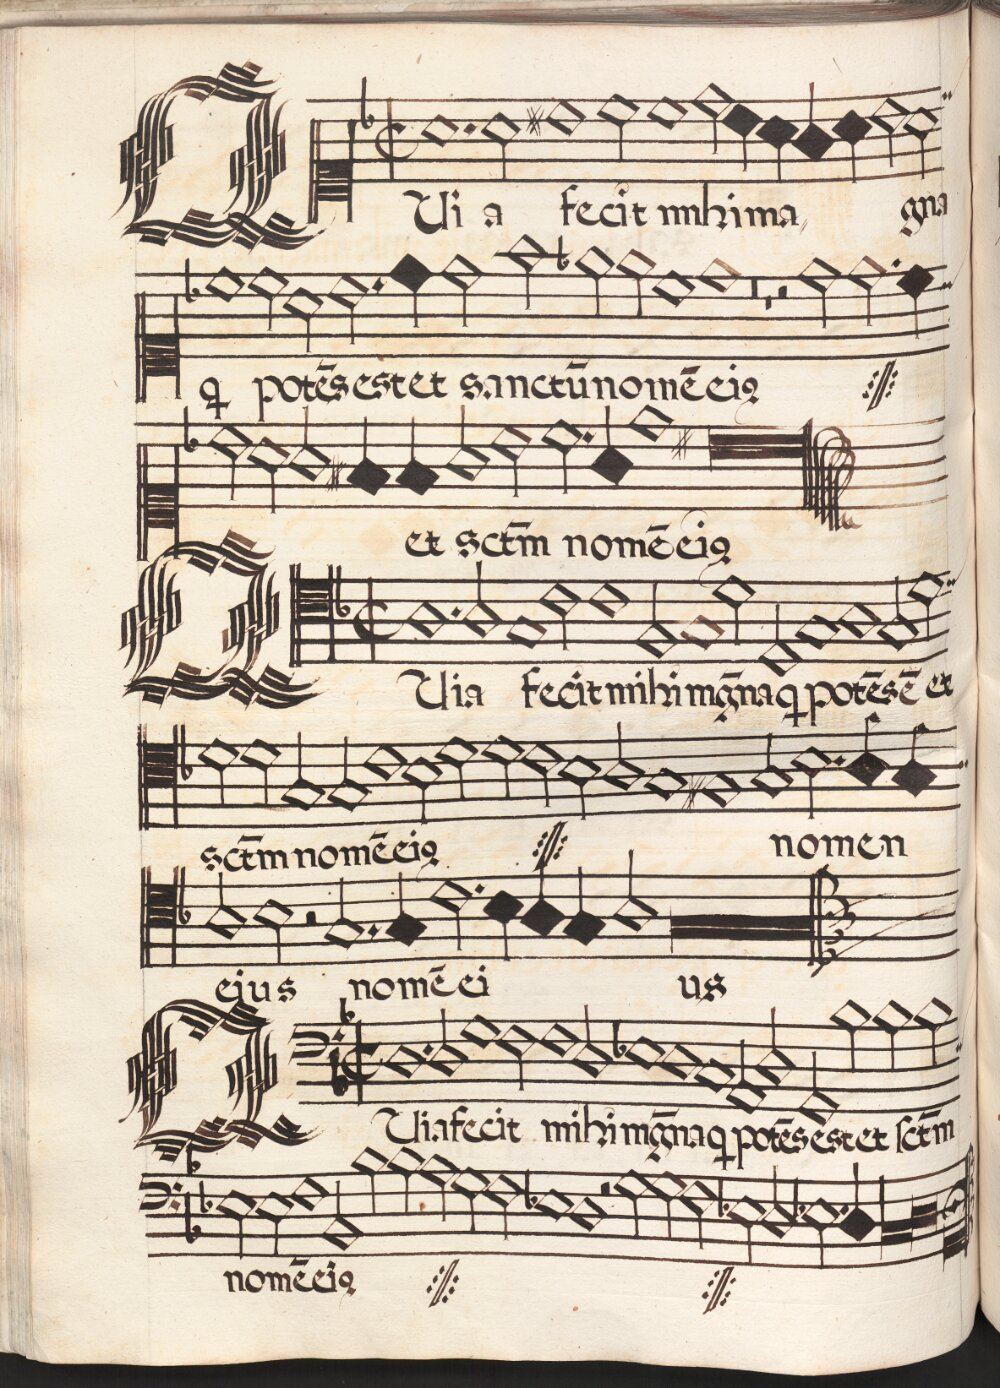 QUi a fecit mihi ma gna
q potēs est et sanctū nomē eiꝯ
et sctm̄ nomē eiꝯ
QUia fecit mihi mḡna q potēs ē et
sctm̄ nomē eiꝯ nomen
ejus nomē ei us
QUia fecit mihi mḡna q potēs est et sctm̄
nomē eiꝯ